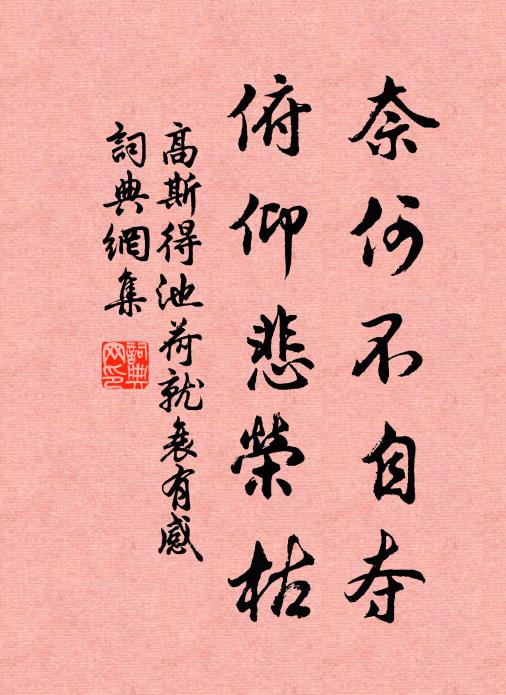 奈何不自夺
俯仰悲榮枯
高斯得池荷就衰有感
詞典網集
詞典
网印